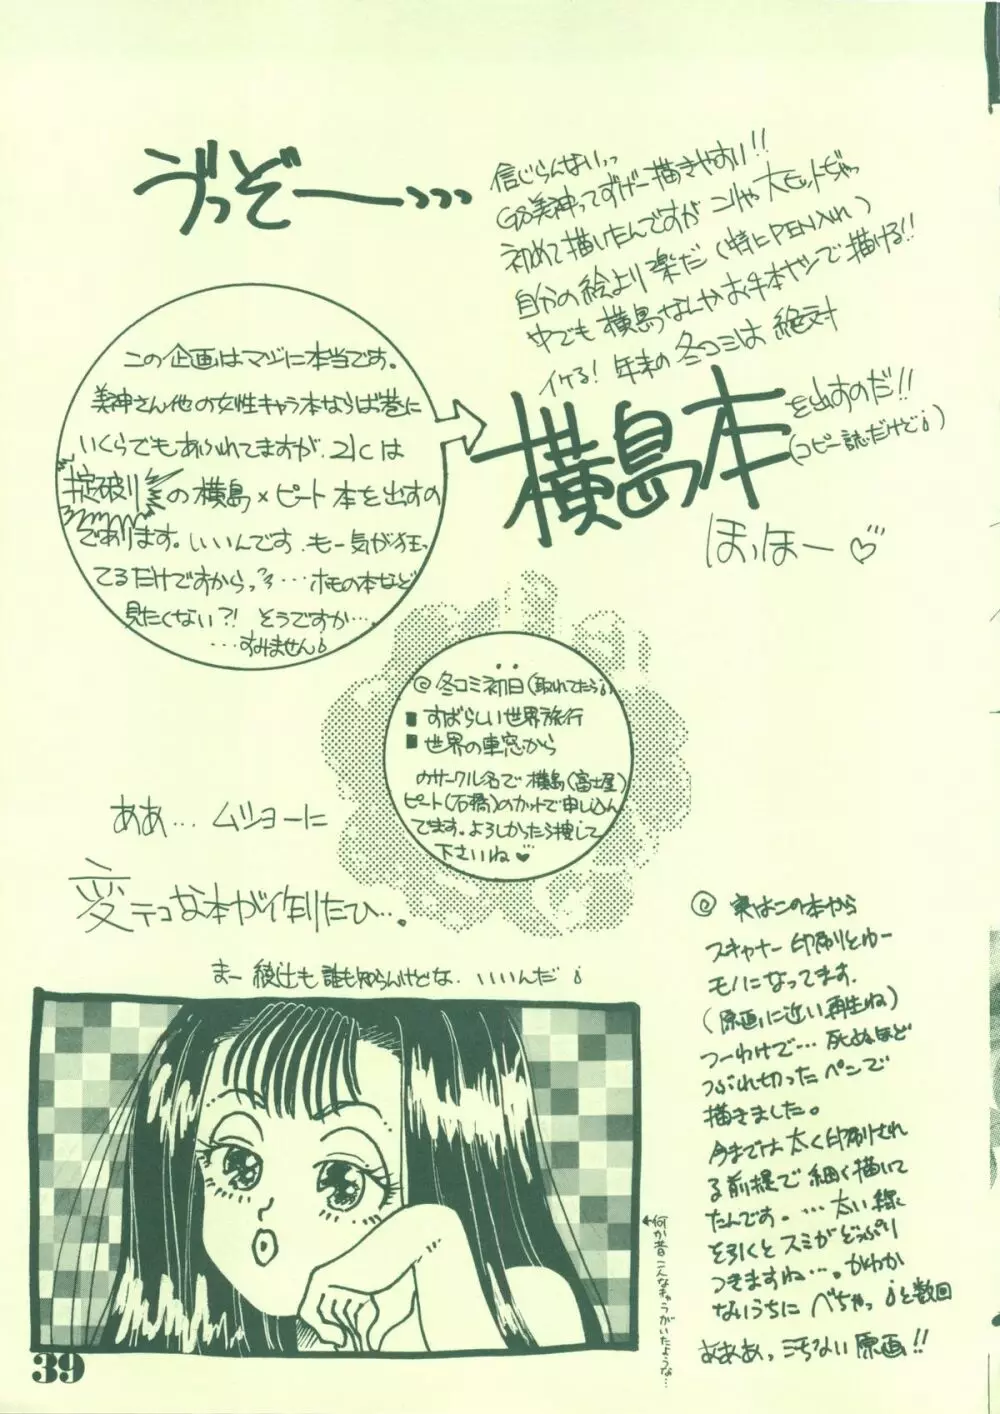 ゔっぞー、、、
信じらんないっっ
GS美神ってすげー描きやすい!!
初めて描いたんですが こりゃ大ヒットぢゃっ
自分の絵より楽だ(特にPEN入れ)
中でも 横島なんかお手本ナシで描ける!!
イケる! 年末の冬コミは 絶対
横島本を出すのだ!!
(コピー誌だけど)
ほっほー♡
この企画はマジに本当です。
美神さん他の女性キャラ本ならば巷に
いくらでもあふれてますが、21Cは
掟破りの横島×ピート本を出すの
であります。いいんです、もー気が狂っ
てるだけですからっ…ホモの本など
見たくない?! そうですか…、
…すみません
◎冬コミ初日(取れてたら)
■すばらしい世界旅行
■世界の車窓から
のサークル名で 横島(富士屋)
ピート(石橋)のカットで申し込ん
でます。よろしかったら捜して
下さいね♥
ああ… ムショーに
変テコな本が作りたひ…。
まー 綾辻も 誰も知らんけどな、いいんだ
◎ 実はこの本から
スキャナー印刷とゆー
モノになってます。
(原画に近い再生ね)
つーわけで… 死ぬほど
つぶれ切ったペンで
描きました。
今までは太く印刷され
る前提で細く描いて
たんです。…太い線
を引くとスミがどっぷり
つきますね…。かわか
ないうちに べちゃっ と数回
あああっ きちない原画!!
←何か昔こんなキャラがいたような…
39